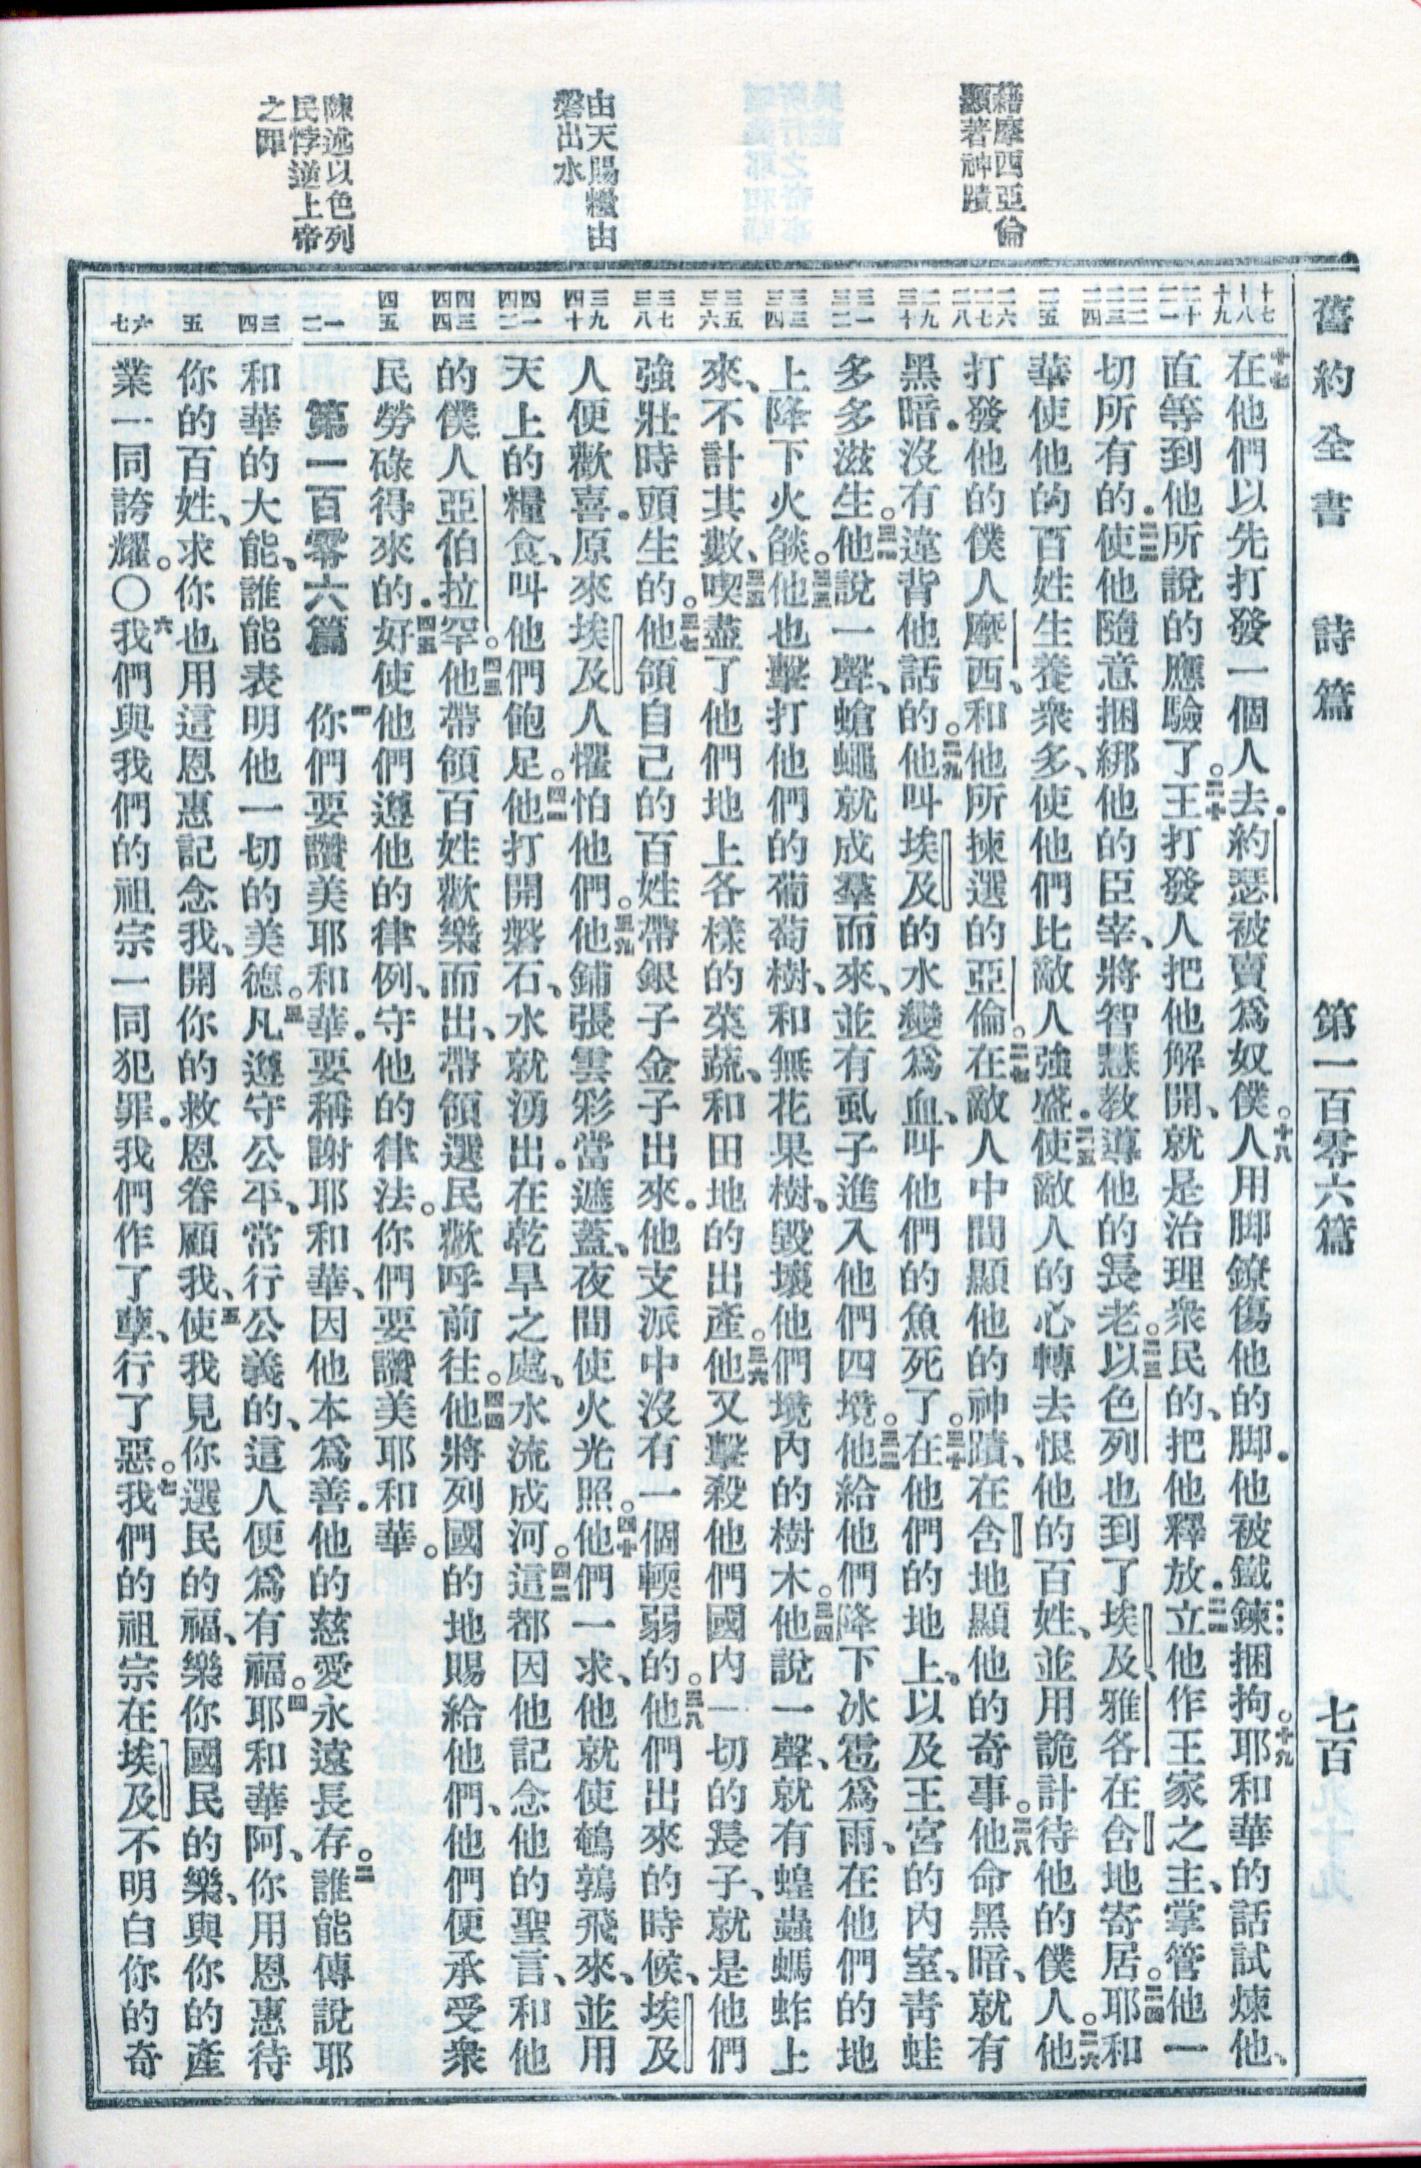 舊約全書 詩篇 第一百零六篇 七百
藉摩西亞倫
顯著神蹟
由天賜糧由
磐出水
陳述以色列
民悖逆上帝
之罪
十七 十八 十九
二十 二一
二二 二三 二四
二五
二六 二七 二八
二九 三十
三一 三二
三三 三四
三五 三六
三七 三八
三九 四十
四一 四二
四三 四四
四五
一 二
三 四
五
六 七
十七在他們以先打發一個人去．約瑟被賣爲奴僕。十八人用脚鐐傷他的脚．他被鐵鍊捆拘。十九耶和華的話試煉他、
直等到他所說的應驗了。二十王打發人把他解開、就是治理衆民的、把他釋放．二一立他作王家之主、掌管他一
切所有的．二二使他隨意捆綁他的臣宰、將智慧教導他的長老。二三以色列也到了埃及、雅各在含地寄居。二四耶和
華使他的百姓生養衆多、使他們比敵人強盛．二五使敵人的心轉去恨他的百姓、並用詭計待他的僕人。二六他
打發他的僕人摩西、和他所揀選的亞倫。二七在敵人中間顯他的神蹟、在含地顯他的奇事。二八他命黑暗、就有
黑暗．沒有違背他話的。二九他叫埃及的水變爲血、叫他們的魚死了。三十在他們的地上、以及王宮的內室、青蛙
多多滋生。三一他說一聲、蒼蠅就成羣而來、並有虱子進入他們四境。三二他給他們降下冰雹爲雨、在他們的地
上降下火燄。三三他也擊打他們的葡萄樹、和無花果樹、毀壞他們境內的樹木。三四他說一聲、就有蝗蟲螞蚱上
來、不計其數、三五喫盡了他們地上各樣的菜蔬、和田地的出產。三六他又擊殺他們國內一切的長子、就是他們
強壯時頭生的。三七他領自己的百姓帶銀子金子出來．他支派中沒有一個輭弱的。三八他們出來的時候、埃及
人便歡喜．原來埃及人懼怕他們。三九他鋪張雲彩當遮蓋、夜間使火光照。四十他們一求、他就使鵪鶉飛來、並用
天上的糧食、叫他們飽足。四一他打開磐石、水就湧出．在乾旱之處、水流成河。四二這都因他記念他的聖言、和他
的僕人亞伯拉罕。四三他帶領百姓歡樂而出、帶領選民歡呼前往。四四他將列國的地賜給他們、他們便承受衆
民勞碌得來的．四五好使他們遵他的律例、守他的律法。你們要讚美耶和華。
第一百零六篇 一你們要讚美耶和華．要稱謝耶和華、因他本爲善．他的慈愛永遠長存。二誰能傳說耶
和華的大能、誰能表明他一切的美德。三凡遵守公平、常行公義的、這人便爲有福。四耶和華阿、你用恩惠待
你的百姓、求你也用這恩惠記念我、開你的救恩眷顧我、五使我見你選民的福、樂你國民的樂、與你的產
業一同誇耀。〇六我們與我們的祖宗一同犯罪．我們作了孽、行了惡。七我們的祖宗在埃及不明白你的奇